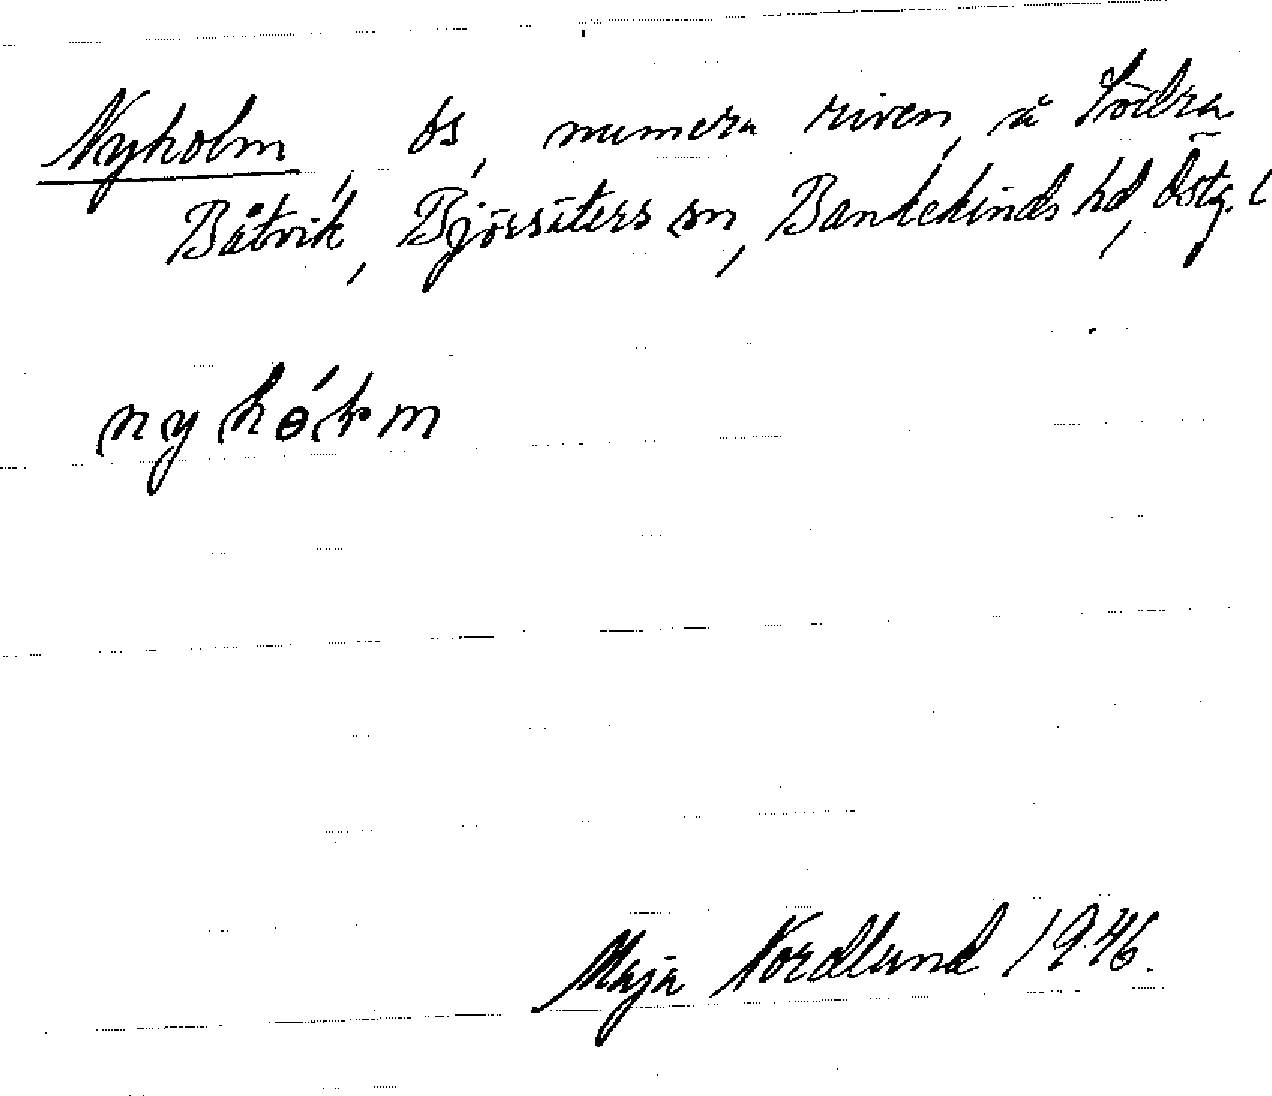 Nyholm, bs, numera riven, å Södra
Båtvik, Björsäters sn, Bankekinds hd, Östg. l
nyhólm
Maja Nordlund 1946.